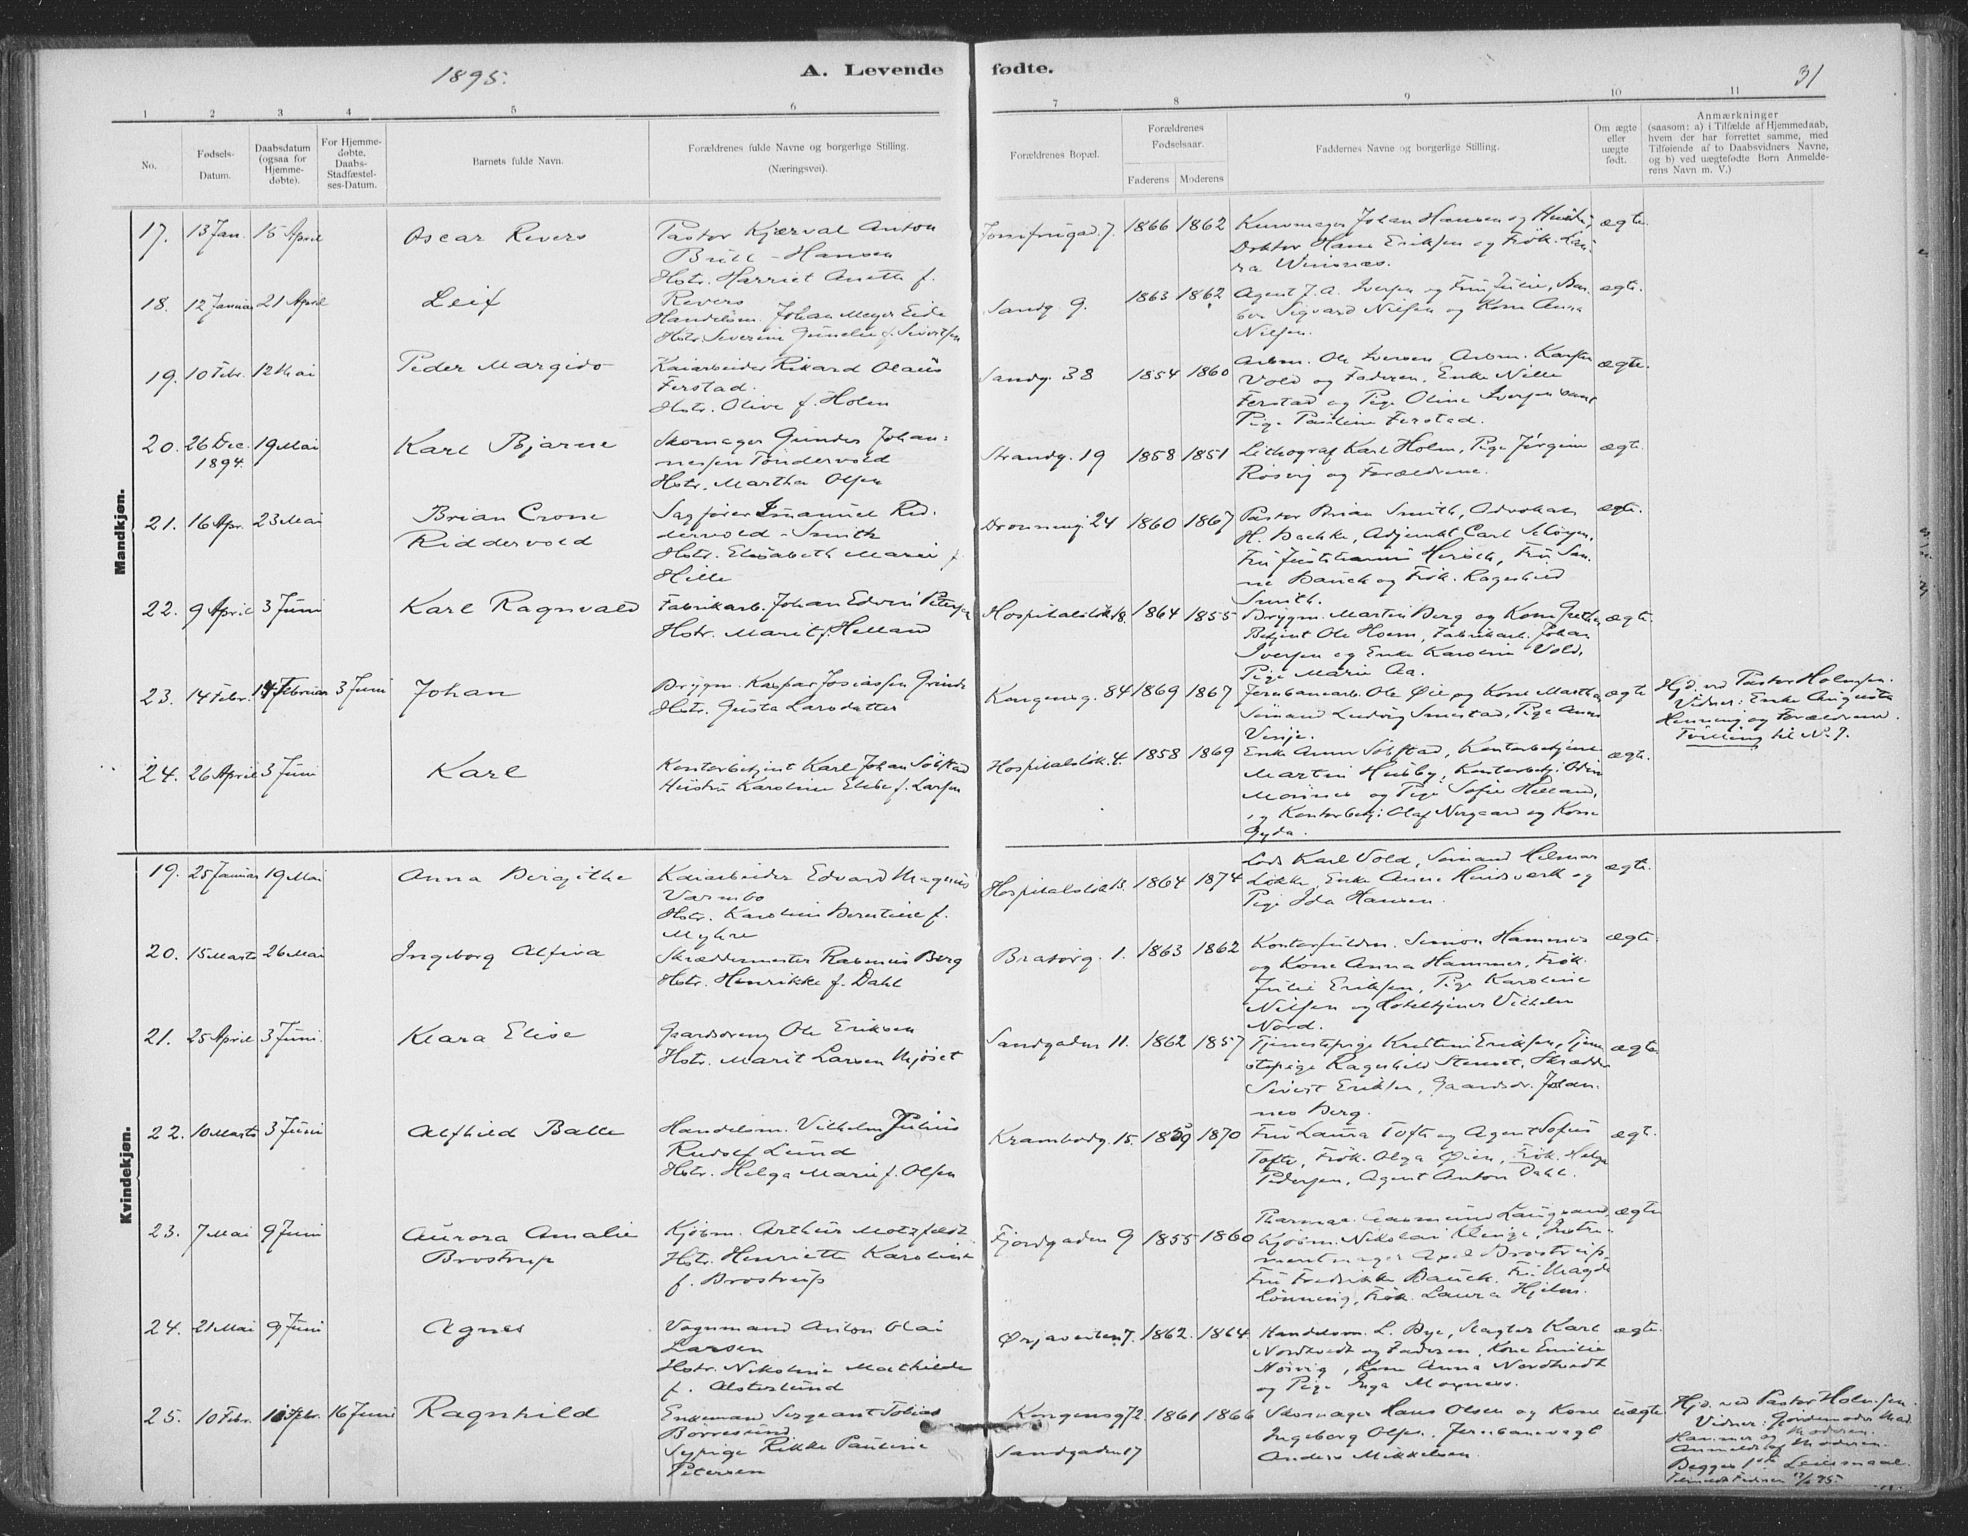 1895.
A. Levende fødte.
31
1 2 3 4 5 6 7 8 9 10 11
No.
Fødsels-Datum.
Daabsdatum (ogsaa for Hjemmedøbte).
For Hjemmedøbte, Daabs-Stadfæstelses-Datum.
Barnets fulde Navn.
Forældrenes fulde Navne og borgerlige Stilling. (Næringsvei).
Forældrenes Bopæl.
Forældrenes Fødselsaar.
Faderens Moderens
Faddernes Navne og borgerlige Stilling.
Om ægte eller uægte født.
Anmærkninger
(saasom: a) i Tilfælde af Hjemmedaab,
hvem der har forrettet samme, med
Tilføiende af to Daabsvidners Navne,
og b) ved uægtefødte Børn Anmelde-
rens Navn m. V.)
Mandkjøn.
17. 13 Jan. 15 April Oscar Revers
Pastor Kjærval Anton
Brill - Hansen
Hstr. Harriet Anette f.
Revers
Jomfrugad. 7. 1866 1862
Kurvmager Johan Hansen og Hustru,
Doktor Hans Eriksen og Frøk. Lau-
ra
ægte.
18. 12 Januar 21 April Leif
Handelsm. Johan Meyer Eide
Hstr. Severine Gunelie f. Sivertsen
Sandg 9. 1863 1862
Agent J. A. Iversen og Fru Julie, Bar-
ber Sigvard Nilsen og Kone Anna
Nilsen.
ægte.
19. 10 Febr. 12 Mai Peder Margido
Kaiarbeider Rikard Olaus
Ferstad.
Hstr. Olive f. Holm
Sandg. 38 1854 1860
Arbm. Ole Iversen, Arbm. Karsten
Vold og Faderen, Enke Nille
Ferstad og Pige Oline Iversen samt
Pige Pauline Ferstad.
ægte.
20. 26 Dec. 1894. 19 Mai Karl Bjarne
Skomager Gunder Johan-
nessen Tøndervold
Hstr. Martha Olsen
Strandg. 19 1858 1851
Lithograf Karl Holm, Pige Jørgine
Røsvig og Forældrene.
ægte.
21. 16 Apr. 23 Mai Brian Crone
Riddervold
Sagfører Imanuel Rid-
dervold - Smith
Hstr. Elisabeth Marie f.
Hille
Dronningg 24 1860 1867
Pastor Brian Smith, Advokat
H. Bachke, Adjunkt Carl Schøyen,
Fru Justitiarius Hirsch, Fru San-
ne Bauck og Frøk. Ragnhild
Smith.
ægte.
22. 9 April 3 Juni Karl Ragnvald
Fabrikarb. Johan Edvin Petersen
Hstr. Marit f. Helland
Hospitalsløk. 18. 1864 1855
Brygm. Martin Berg og Kone Grethe,
Betjent Ole Hoem, Fabrikarb. Johan
Iversen og Enke Karoline Vold,
Pige Marie Aa.
ægte.
23. 14 Febr. 14 Februar 3 Juni Johan
Brygm. Kaspar Josiassen Grinde
Hstr. Gusta Larsdatter
Kongensg. 84 1869 1867
Jernbanearb. Ole Øie og Kone Martha,
Sømand Ludvig Smestad, Pige Anna
ægte
Hjd. ved Pastor Holmsen.
Vidner: Enke Augusta
Henning og Forældrene.
Tvilling til No 7.
24. 26 April 3 Juni Karl
Kontorbetjent Karl Johan Søbstad
Hustru Karoline Elise f. Larsen
Hospitalsløk. 4. 1858 1869
Enke Anna Søbstad, Kontorbetjent
Martin Husby, Kontorbetj. Odin
og Pige Sofie Helland,
og Kontorbetj: Olaf Norgaard og Kone
Gyda.
ægte.
Kvindekjøn.
19. 25 Januar 19 Mai Anna Bergithe
Kaiarbeider Edvard Magnus
Varmbo
Hstr. Karoline Berntine f.
Myhre
Hospitalsløk 13. 1864 1874
Lods Karl Vold, Sømand Hilmar
Løkke, Enke Anne Hindsværk og
Pige Ida Hansen.
ægte.
20. 15 Marts 26 Mai Ingeborg Alfiva
Skræddermester Rasmus Berg
Hstr. Henrikke f. Dahl
Bratørg. 1. 1863 1862
Kontorfuldm. Simon Hammer
og Kone Anna Hammer, Frøk.
Julie Eriksen, Pige Karoline
Nilsen og Hoteltjener Vilhelm
Nord.
ægte.
21. 25 April 3 Juni. Klara Elise
Gaardsdreng Ole Eriksen
Hstr. Marit Larsen Mjøset
Sandgaden 11. 1862 1857
Tjenestepige Kristine Eriksen, Tjene-
stepige Ragnhild Stenset, Skrædder
Sivert Eriksen, Gaardsdr. Johan-
nes Berg.
ægte.
22. 10 Marts 3 Juni Alfhild Balle
Handelsm. Vilhelm Julius
Rudolf Lund
Hstr. Helga Marie f. Olsen
Krambodg. 15. 1859 1870
Fru Laura Tofte og Agent Sofus
Tofte, Frøk. Olga Øien, Frøk. Helga
Pedersen, Agent Anton Dahl.
ægte.
23. 7 Mai 9 Juni Aurora Amalie
Brostrup
Kjøbm. Arthur Motzfeldt
Hstr. Henriette Karoline
f. Brostrup
Fjordgaden 9 1855 1860
Kjøbm. Nikolai Klinge, Instru-
mentmager Axel Brostrup,
Fru Fredrikke Bauck. Fru Magda
Lønning, Frøk. Laura Hjelm.
ægte
24. 21 Mai 9 Juni Agnes
Vognmand Anton Olai
Larsen
Hstr. Nikoline Mathilde
f. Alsterlund
Ørjaveiten 7. 1862. 1864.
Handelsm. L. Bye, Slagter Karl
Nordtvedt og Faderen, Kone Emilie
Høivig, Kone Anna Nordtvedt
og Pige Inga Moxness.
ægte.
25. 10 Febr. 10 Febr. 16 Juni Ragnhild
Enkemand Sergeant Tobias
Borresund
Sypige Rikke Pauline
Petersen
Kongensg 72. 1861 1866
Sandgaden 17
Skomager Hans Olsen og Kone
Ingeborg Olsen. Jernbanevagt
Anders Mikkelsen
uægte
Hjd. ved Pastor Holmsen.
Vidner: Gjordemoder Mad.
Hammer og Moderen.
Anmeldt af Moderen.
Begges 1ste Leiermaal.